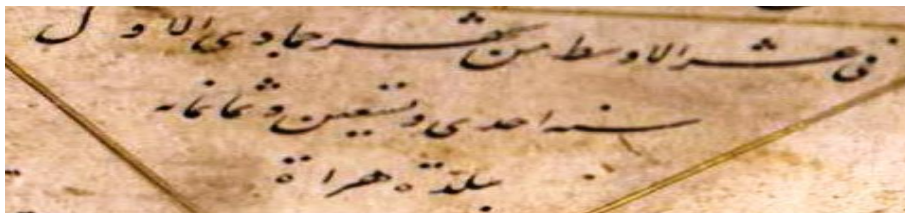 فی عشر الاوسط من شهر جمادی الاول
سنه احدی و تسعین و ثمانمائه
بلدة هراة